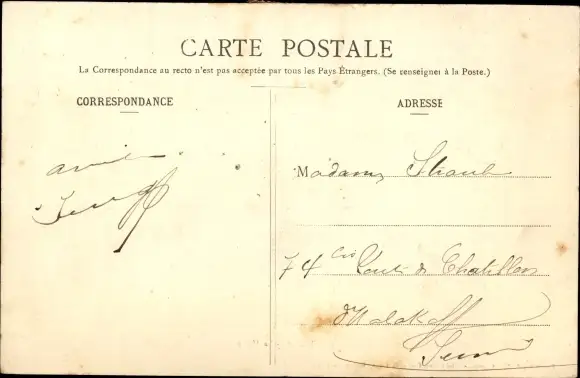 CARTE POSTALE
La Correspondance au recto n'est pas acceptée par tous les Pays Étrangers. (Se renseigner à la Poste.)
CORRESPONDANCE
ADRESSE
Madame Straub
74 bis Route de Chatillon
Malakoff
Seine